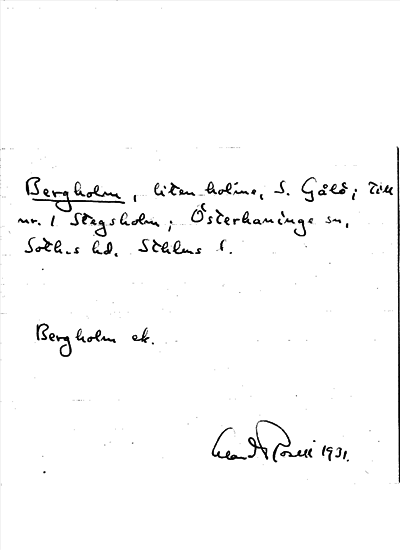 Bergholm, liten holme, S. Gålö; till
nr. 1 Stegsholm; Österhaninge sn,
Soth.s hd. Sthlms l.
Bergholm ek.
1931.